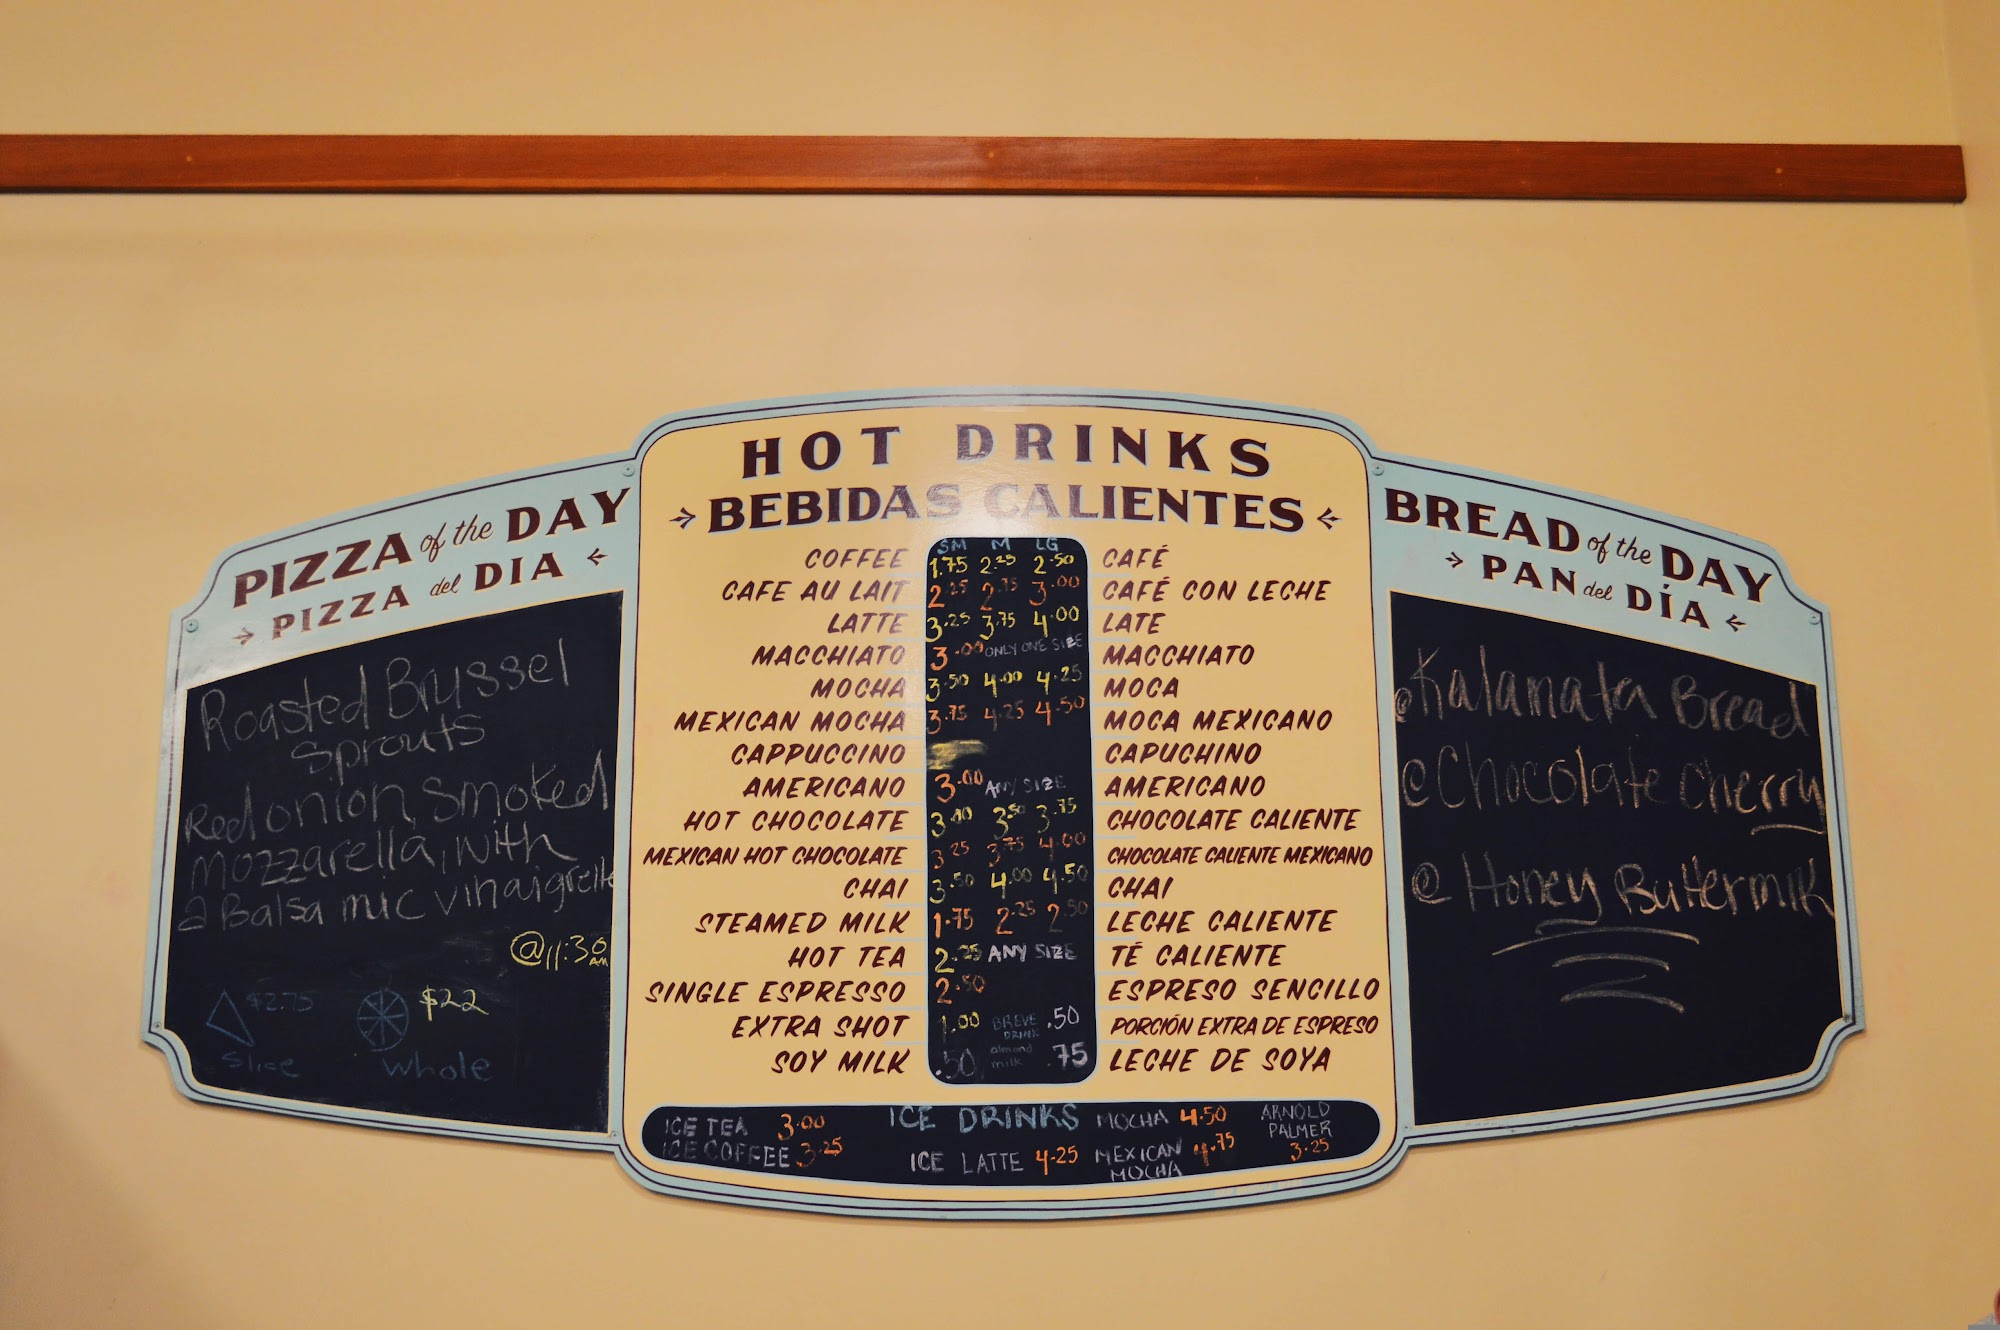 PIZZA of the DAY
PIZZA del DIA
Roasted Brussel
Sprouts
Red onion, Smoked
Mozzarella, with
a Balsamic vinaigrette
@ 11:30 AM
$2.75 $22
Slice Whole
HOT DRINKS
BEBIDAS CALIENTES
SM M LG
COFFEE 1.75 2.25 2.50 CAFÉ
CAFE AU LAIT 2.25 2.75 3.00 CAFÉ CON LECHE
LATTE 3.25 3.75 4.00 LATE
MACCHIATO 3.00 ONLY ONE SIZE MACCHIATO
MOCHA 3.50 4.00 4.25 MOCA
MEXICAN MOCHA 3.75 4.25 4.50 MOCA MEXICANO
CAPPUCCINO CAPUCHINO
AMERICANO 3.00 ANY SIZE AMERICANO
HOT CHOCOLATE 3.00 3.50 3.75 CHOCOLATE CALIENTE
MEXICAN HOT CHOCOLATE 3.25 3.75 4.00 CHOCOLATE CALIENTE MEXICANO
CHAI 3.50 4.00 4.50 CHAI
STEAMED MILK 1.75 2.25 2.50 LECHE CALIENTE
HOT TEA 2.25 ANY SIZE TÉ CALIENTE
SINGLE ESPRESSO 2.50 ESPRESO SENCILLO
EXTRA SHOT 1.00 BREVE DRINK .50 PORCIÓN EXTRA DE ESPRESO
SOY MILK .50 almond milk .75 LECHE DE SOYA
ICE DRINKS
ICE TEA 3.00
ICE COFFEE 3.25
ICE LATTE 4.25
MOCHA 4.50
MEXICAN MOCHA 4.75
ARNOLD PALMER 3.25
BREAD of the DAY
PAN del DÍA
@ Kalamata Bread
@ Chocolate Cherry
@ Honey Buttermilk